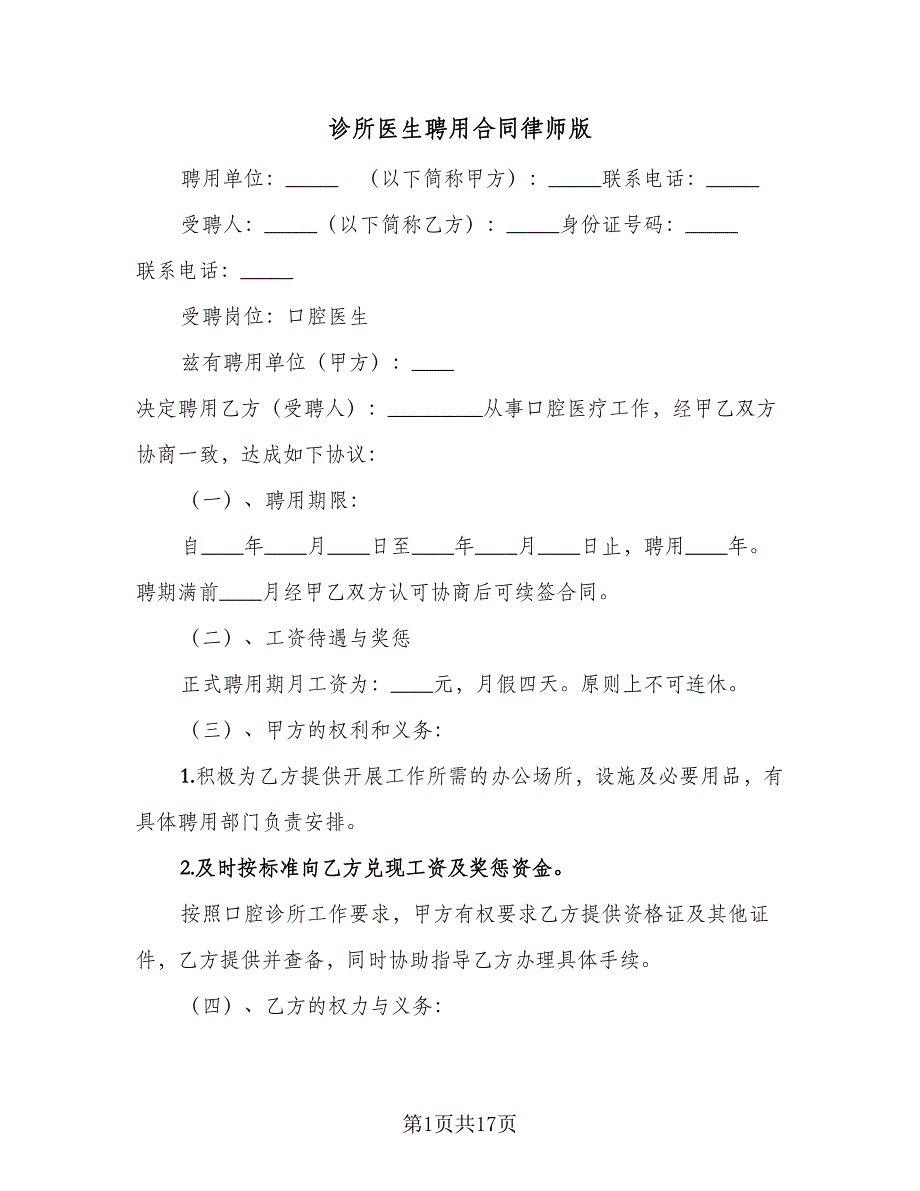 诊所医生聘用合同律师版
聘用单位：_____　（以下简称甲方）：_____联系电话：_____
受聘人：_____（以下简称乙方）：_____身份证号码：_____
联系电话：_____
受聘岗位：口腔医生
兹有聘用单位（甲方）：____
决定聘用乙方（受聘人）：_________从事口腔医疗工作，经甲乙双方
协商一致，达成如下协议：
（一）、聘用期限：
自____年____月____日至____年____月____日止，聘用____年。
聘期满前____月经甲乙双方认可协商后可续签合同。
（二）、工资待遇与奖惩
正式聘用期月工资为：____元，月假四天。原则上不可连休。
（三）、甲方的权利和义务：
1.积极为乙方提供开展工作所需的办公场所，设施及必要用品，有
具体聘用部门负责安排。
2.及时按标准向乙方兑现工资及奖惩资金。
按照口腔诊所工作要求，甲方有权要求乙方提供资格证及其他证
件，乙方提供并查备，同时协助指导乙方办理具体手续。
（四）、乙方的权力与义务：
第1页共17页